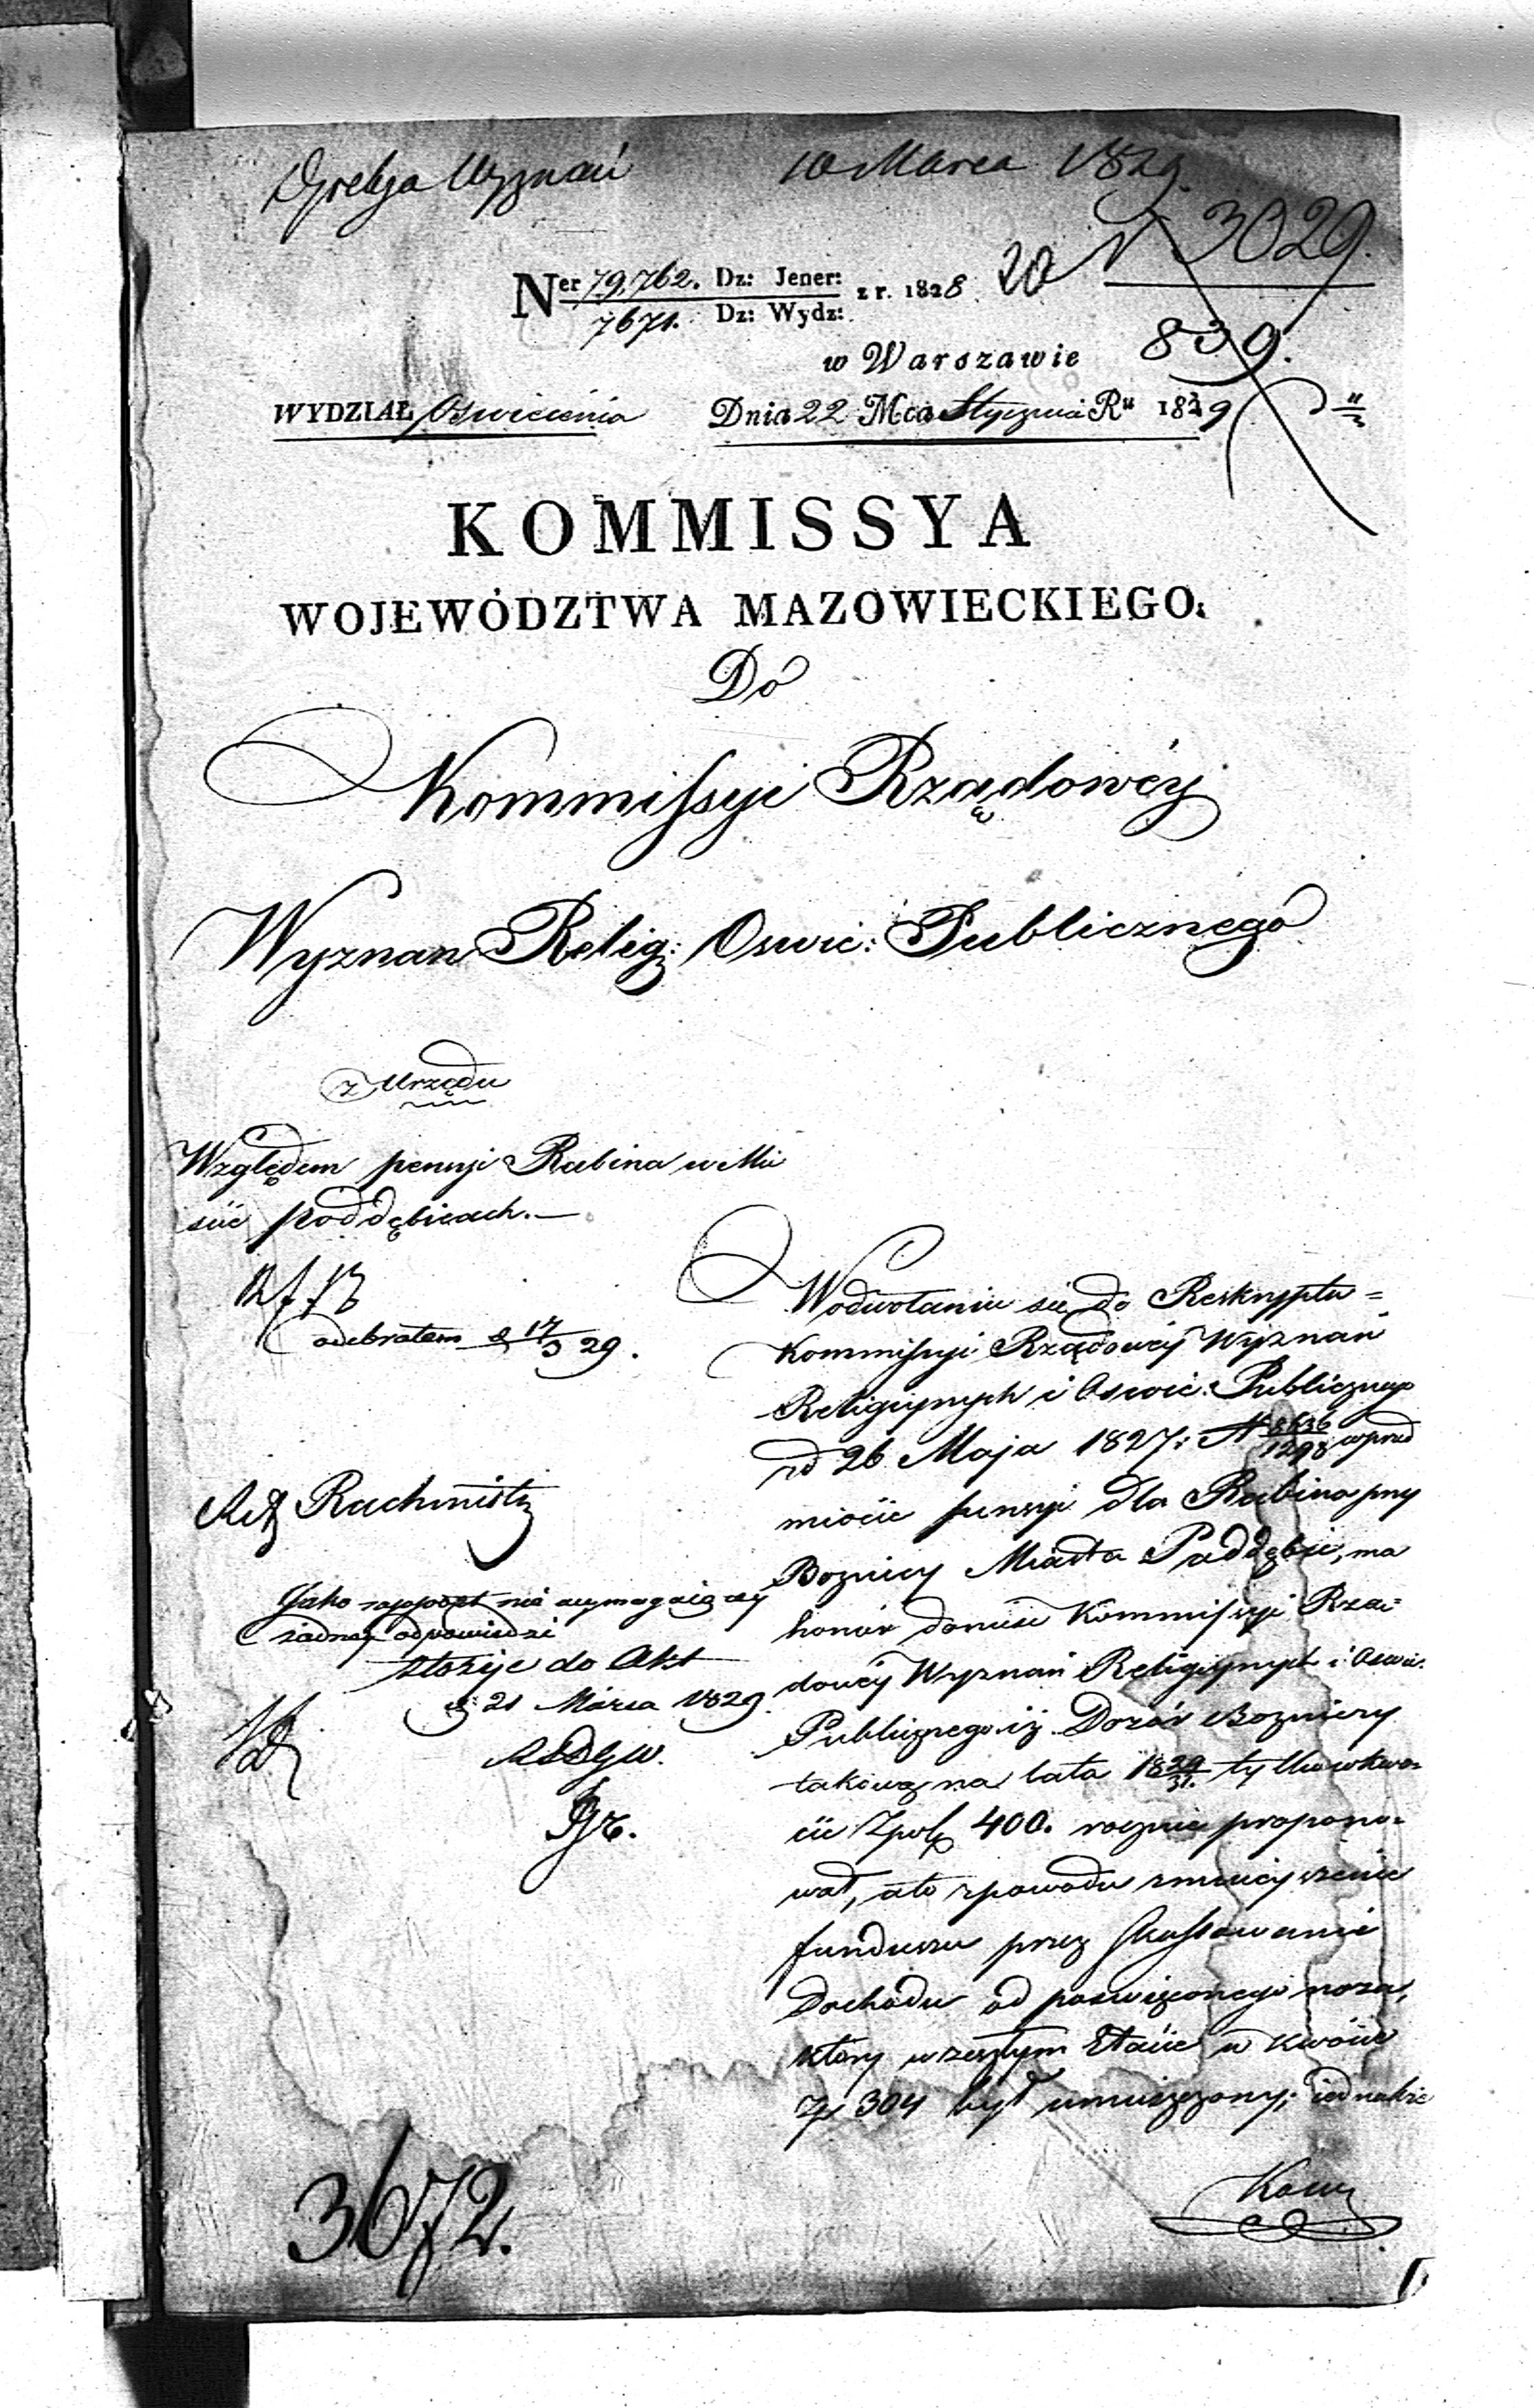 Dyrekcja Wyznań 10 Marca 1829.
20 N 3029.
Ner 79,762. Dz: Jener: z r. 1828.
7671. Dz: Wydz:
839.
w Warszawie
WYDZIAŁ Oswiecenia Dnia 22 Mca Stycznia Ru 1829
KOMMISSYA
WOJEWÓDZTWA MAZOWIECKIEGO.
Do
Kommissyi Rządowéy
Wyznan Relig: Oswie: Publicznego
z Urzędu
Względem pensyi Rabina w Mie
scie Poddębicach.—
odebrałem d 17/3 29.
Ref Rachmistrz
Jako rapport nie wymagaiący
żadney odpowiedzi
złożyć do Akt
d: 21 Marca 1829
W odwołaniu się do Reskryptu=
Kommissyi Rządowéy Wyznań
Religiynych i Oswie: Publicznego
z d 26 Maja 1827: N 8636/1298 w przed
miocie pensyi dla Rabina przy
Boznicy Miasta Poddębic, ma
honor donieść Kommissyi Rzą=
dowéy Wyznań Religiynych i Oswie:
Publicznego iż Dozór Bozniczy
takową na lata 1829/31. tylko w kwo=
cie Zpol 400. rocznie propono=
wał, a to z powodu zmnieyszenia
funduszu przez skassowanie
Dochodu od poswięconego noża,
który w zeszłym Etacie w kwocie
Zp 304 był umieszczony; iednakże
3672.